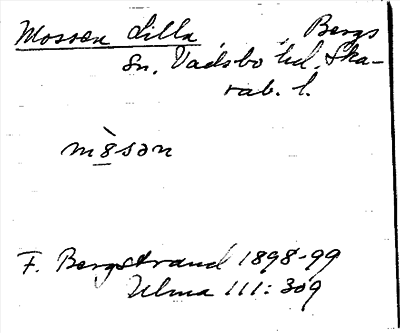 Mossen Lilla, Bergs
sn. Vadsbo hd. Ska-
rab. l.
mòsən
F. Bergstrand 1898-99
Ulma 111:309